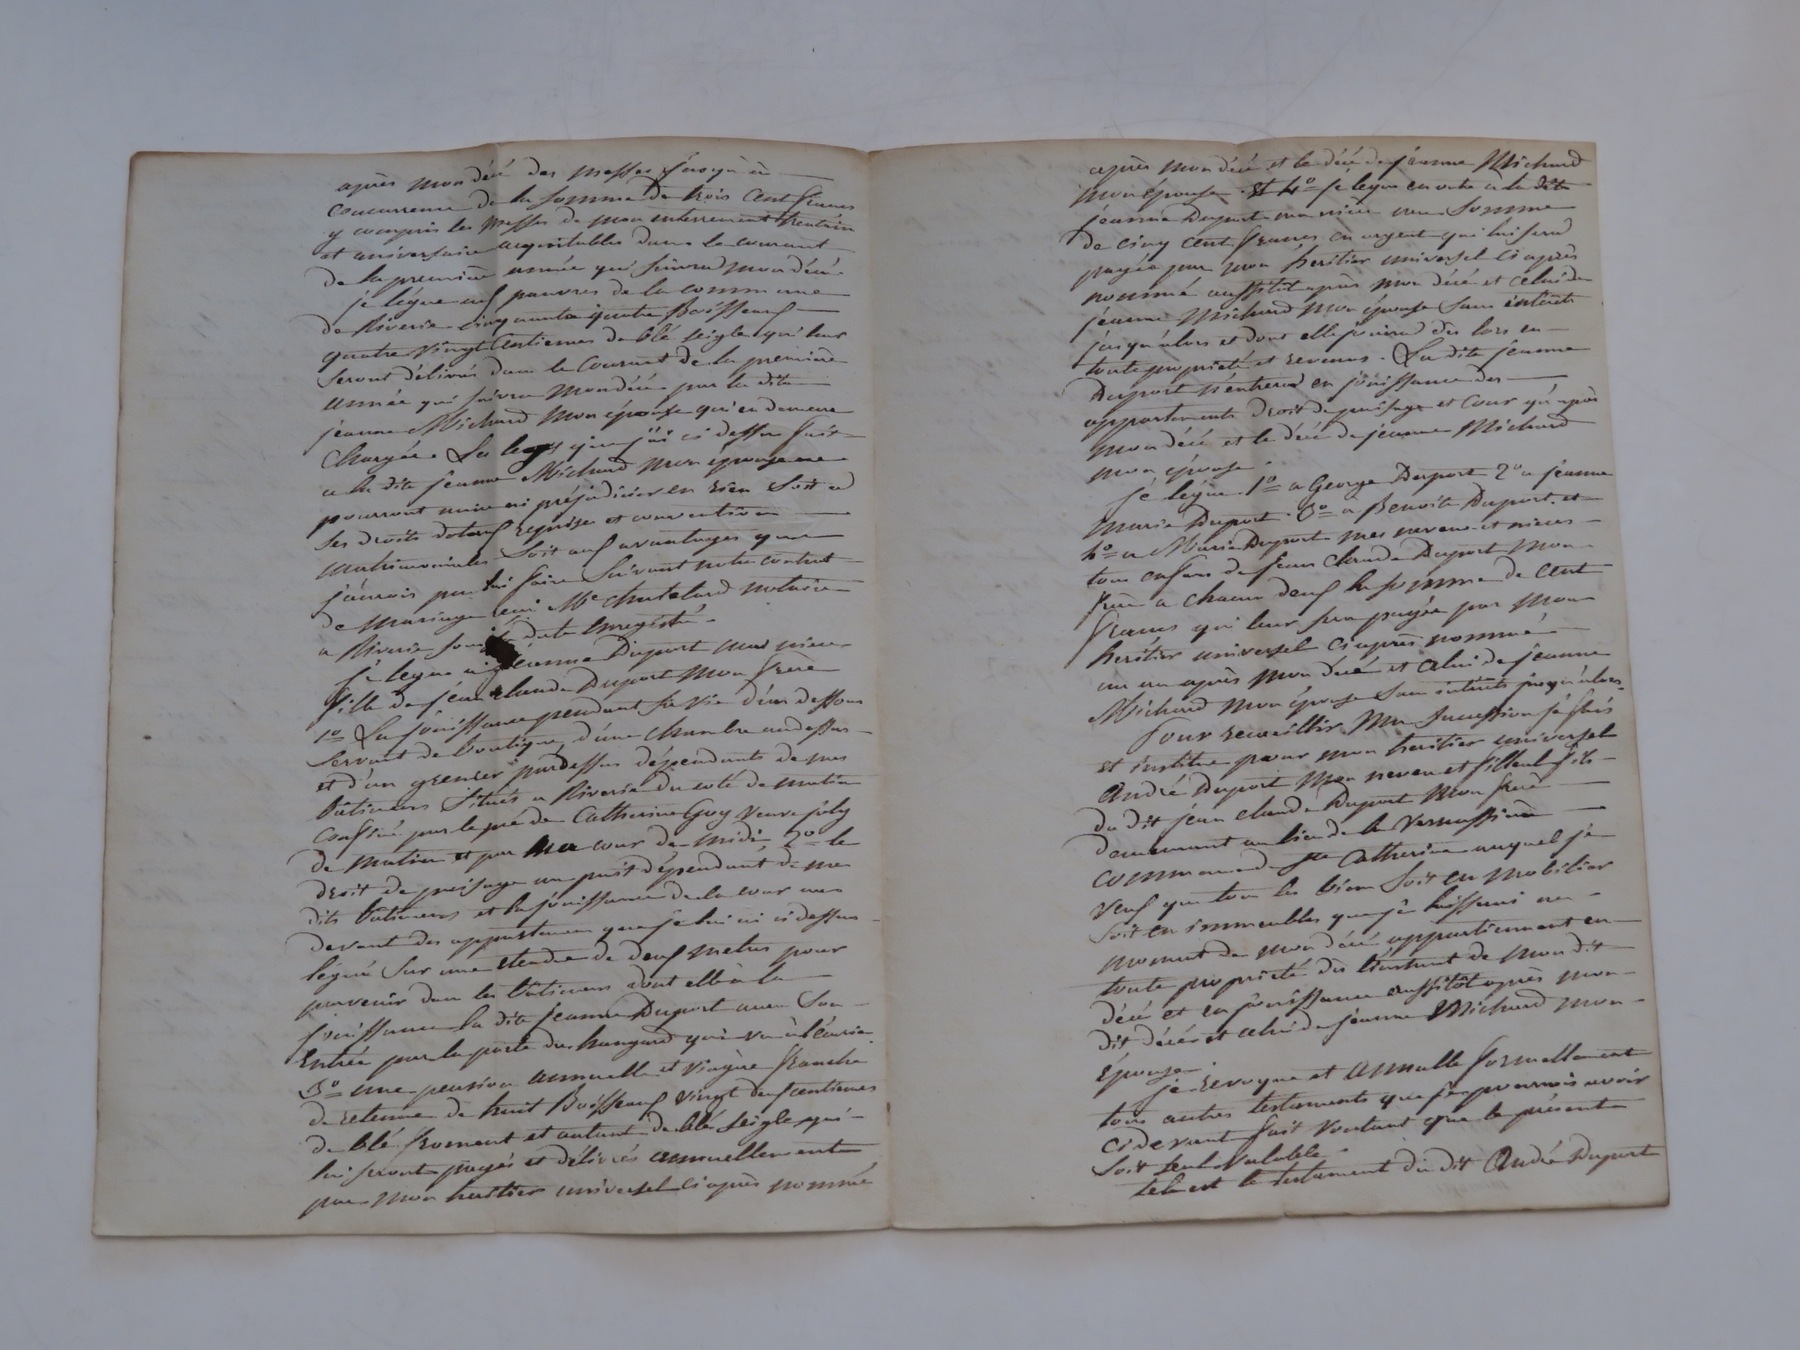 après mon décé des messes jusqu'à
concurrence de la somme de trois cent francs
y compris les messes de mon enterrement trentain
et aniversaire acquitables dans le courant
de la première année qui suivra mon décé.
je lègue aux pauvres de la commune
de Riverie cinquante quatre Boisseaux
quatre vingt centiemes de blé seigle qui leur
seront délivrés dans le courant de la première
année qui suivra mon décé par la dite
jeanne Michard mon épouse qui en demeure
chargée. Les legs que j'ai ci dessus fait
a la dite jeanne Michard mon épouse ne
pourront nuire ni préjudicier en rien soit a
ses droits dotaux reprises et conventions
matrimoniales soit aux avantages que
j'aurois pu lui faire suivant notre contrat
de mariage reçu Me chatelard notaire
a Riverie sous date enregistré.
je legue a jeanne Duport ma niece
fille de jean claude Duport mon frere
1o La jouissance pendant sa vie d'un dessous
servant de boutique, d'une chambre au dessus
et d'un grenier pardessus dépendants de mes
bâtimens situés a Riverie du coté de matin
confiné par le pré de Catherine Guy veuve joly
de matin et par ma cour de midi 2o le
droit de puisage au puit dépendant de mes
dits bâtimens et la jouissance de la cour au
devant des appartemens que je lui ai ci dessus
légué sur une étendue de deux metres pour
parvenir dans les bâtimens dont elle a la
jouissance la dite jeanne Duport aura son
entrée par la porte du hangard qui va à l'écurie
3o une pension annuelle et viagère franche
de retenue de huit Boisseaux vingt deux centiemes
de blé froment et autant de blé seigle qui
lui seront payés et délivrés annuellement
par mon heritier universel ci après nommé
après mon décé et le décé de jeanne Michard
mon épouse et 4o je legue en outre a la dite
jeanne Duport ma niece une somme
de cinq cent francs en argent qui lui sera
payée par mon heritier universel ci après
nommé aussitôt après mon décé et celui de
jeanne Michard mon épouse sans intérêts
jusqu'alors et dont elle jouira dès lors en
toute propriété et revenus. La dite jeanne
Duport n'entrera en jouissance des
appartements droit de puisage et cour qu'après
mon décé et le décé de jeanne Michard
mon épouse.
je lègue 1o a George Duport 2o a jeanne
Marie Duport. 3o a Benoite Duport et
4o a Marie Duport mes neveux et nieces
tous enfans de jean claude Duport mon
frère a chacun deux la somme de cent
francs qui leur sera payée par mon
heritier universel ci après nommé
un an après mon décé et celui de jeanne
Michard mon épouse sans intérêts jusqu'alors.
Pour recueillir ma succession je fais
et institue pour mon heritier universel
André Duport mon neveu et filleul fils
du dit jean claude Duport mon frere
demeurant au lieu de la
commune de Ste Catherine auquel je
veux que tous les biens soit en mobilier
soit en immeubles que je laisserai au
moment de mon décé appartiennent en
toute propriété dès l'instant de mon dit
décé et en jouissance aussitôt après mon
dit décé et celui de jeanne Michard mon
épouse.
je revoque et annulle formellement
tous autres testaments que je pourrois avoir
ci devant fait voulant que le présent
soit seul valable.
tel est le testament du dit André Duport